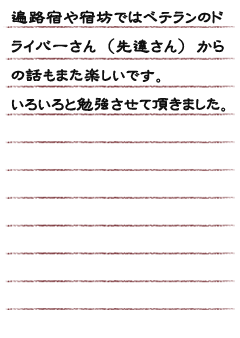 遍路宿や宿坊ではベテランのド
ライバーさん（先達さん）から
の話もまた楽しいです。
いろいろと勉強させて頂きました。